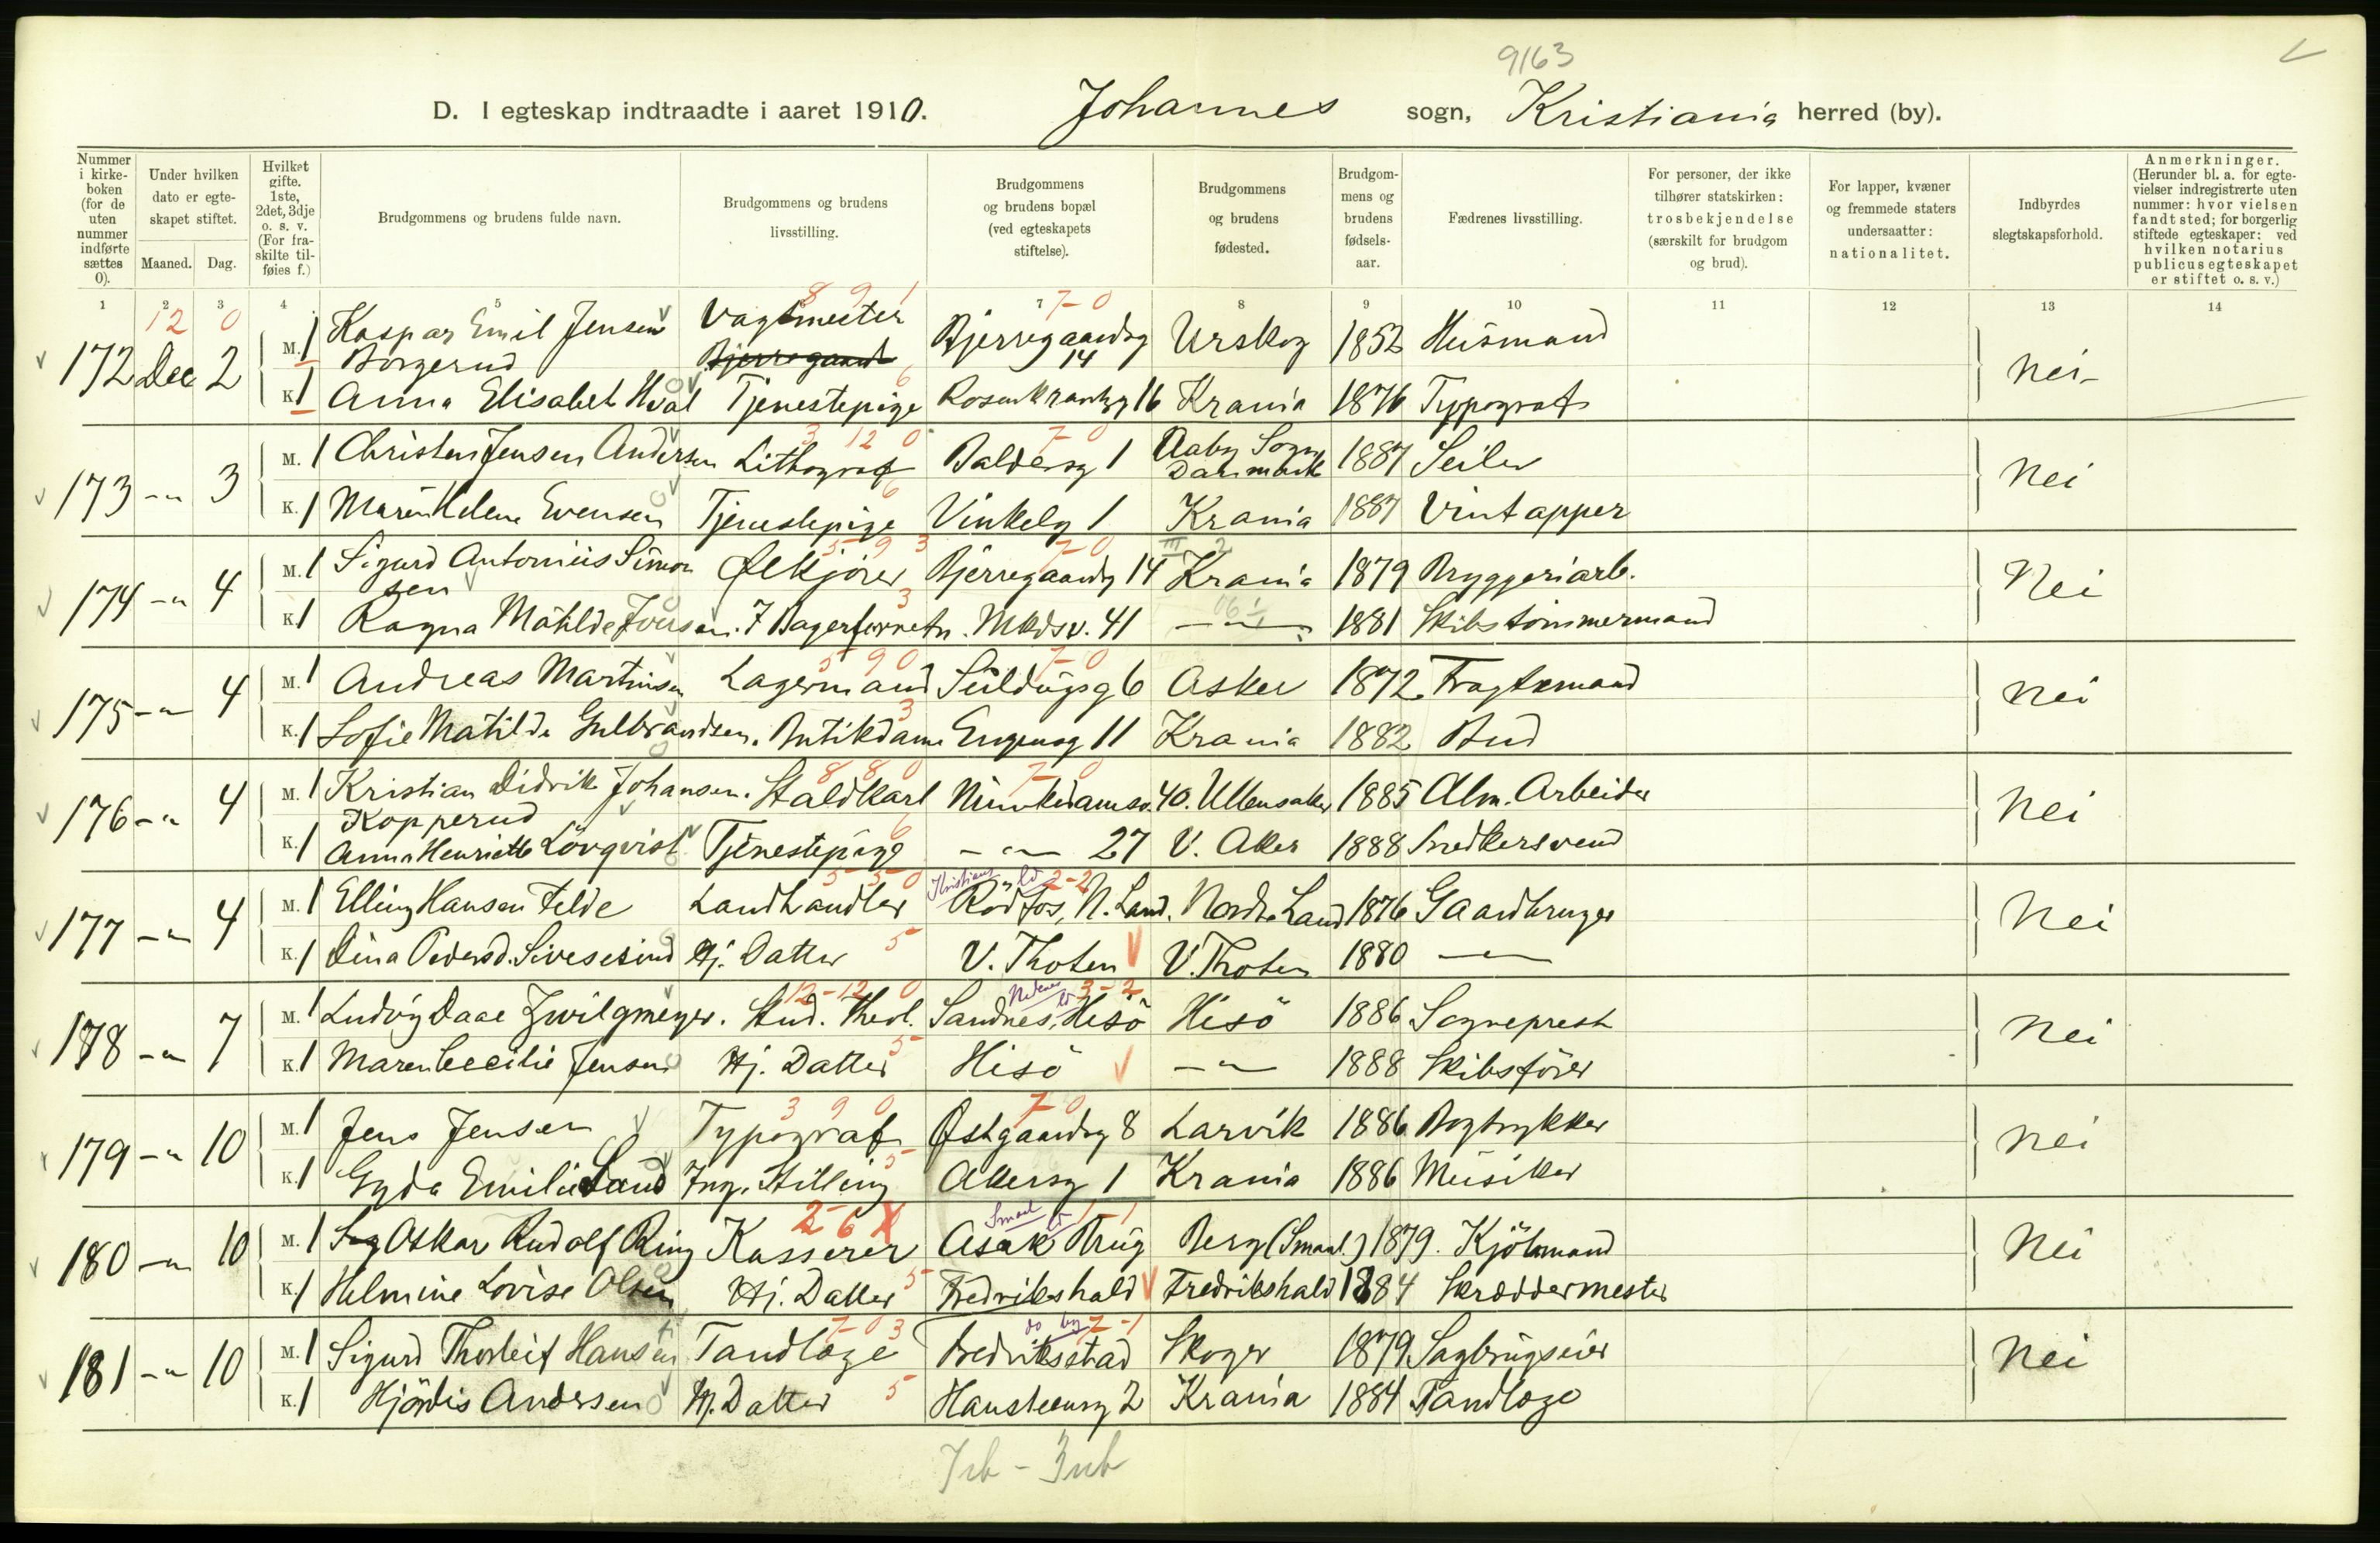 9163
D. I egteskap indtraadte i aaret 1910. Johannes sogn, Kristiania herred (by).
Nummer i kirke-boken (for de uten nummer indførte sættes 0).
Under hvilken dato er egte-skapet stiftet. Maaned. Dag.
Hvilket gifte. 1ste, 2det, 3dje o. s. v. (For fra-skilte til-føies f.)
Brudgommens og brudens fulde navn.
Brudgommens og brudens livsstilling.
Brudgommens og brudens bopæl (ved egteskapets stiftelse).
Brudgommens og brudens fødested.
Brudgom-mens og brudens fødsels-aar.
Fædrenes livsstilling.
For personer, der ikke tilhører statskirken: trosbekjendelse (særskilt for brudgom og brud).
For lapper, kvæner og fremmede staters undersaatter: nationalitet.
Indbyrdes slegtskapsforhold.
Anmerkninger. (Herunder bl. a. for egte-vielser indregistrerte uten nummer: hvor vielsen fandt sted; for borgerlig stiftede egteskaper: ved hvilken notarius publicus egteskapet er stiftet o. s. v.)
1 2 3 4 5 7 8 9 10 11 12 13 14
12 0 8 9 1 7-0
172 Dec 2 M. 1 Kaspar Emil Jensen Borgerud Vagtmester Bjerregaardsg 14 Urskog 1852 Husmand Nei-
K. 1 Anna Elisabet Hval Tjenestepige 6 Rosenkrantzg 16 Krania 1876 Typograf
3 12 0 7-0
173 -"- 3 M. 1 Christen Jensen Andersen Lithograf Baldersg 1 Aaby Sogn Danmark 1887 Seiler Nei
K. 1 Maren Helene Evensen Tjenestepige 6 Vinkelg 1 Krania 1887 Vintapper
5 9 3 7-0 III 2
174 -"- 4 M. 1 Sigurd Antonius Simonsen Ølkjører Bjerregaardsg 14 Krania 1879 Bryggeriarb. Nei
K. 1 Ragna Mathilde Jonsen. F. Bagerforretn. 3 Mkdsv. 41 -"- 1881 Skibstømmermand
5 9 0 7-0
175 -"- 4 M. 1 Andreas Martinsen Lagermand Suldugsg 6 Asker 1872 Fragtemand Nei
K. 1 Sofie Matilde Gulbrandsen. Butikdame 3 Eugeniag 11 Krania 1882 Bud
8 8 0 7-0
176 -"- 4 M. 1 Kristian Didrik Johansen Kopperud Staldkarl Munkedamsv. 40. Ullensaker 1885 Alm. Arbeider Nei
K. 1 Anna Henriette Lövqvist Tjenestepige 6 -"- 27 V. Aker 1888 Snedkersvend
5-5-0 Kristians 2-2
177 -"- 4 M. 1 Elling Hansen Felde Landhandler Rödfos, N. Land. Nordre Land 1876 Gaardbruger Nei
K. 1 Dina Pedersd. Sivesesind Hj. Datter 5 V. Thoten V. Thoten 1880 -"-
12-12 0 Nedenes 3-2
178 -"- 7 M. 1 Ludvig Daae Zwilgmeyer. Stud. Theol. Sandnes, Hisö Hisö 1886 Sogneprest Nei
K. 1 Maren Cecilie Jensen Hj. Datter 5 Hisö -"- 1888 Skibsfører
3 9 0 7-0
179 -"- 10 M. 1 Jens Jensen Typograf Østgaardsg 8 Larvik 1886 Bogtrykker Nei
K. 1 Gyda Emilie Lund Ing. Stilling 5 Akersg 1 Krania 1886 Musiker
2-6 X Smaal 1-1
180 -"- 10 M. 1 Oskar Rudolf Ring Kasserer Asak Brug Berg (Smaal.) 1879. Kjöbmand Nei
K. 1 Helmine Lovise Olsen Hj. Datter 5 Fredrikshald Fredrikshald 1884 Skræddermester
7-0 3 do by 2-1
181 -"- 10 M. 1 Sigurd Thorleif Hansen Tandlæge Fredriksstad Skoger 1879 Sagbrugseier Nei
K. 1 Hjördis Andersen Hj. Datter 5 Hansteensg 2 Krania 1884 Tandlæge